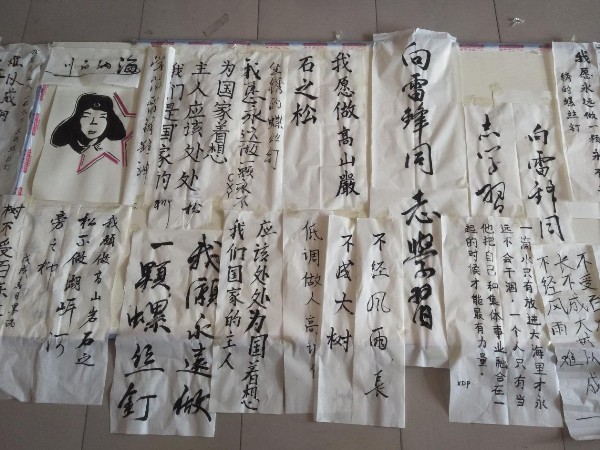 我们是国家的
主人应该处处
为国家着想
我愿永远做一颗永不
生锈的螺丝钉
我愿做高山巖
石之松
向雷锋同志學習
向雷锋同
志学習
我愿永远做一颗永
锈的螺丝钉
树不受百炼
我願做高山岩石之
松不做湖岸河
旁之柳
我願永遠做
一顆螺丝釘
我们国家的主人
应该处处为国着想
低调做人高
不经风雨长
不成大树
一滴水只有放进大海里才永
远不会干涸，一个人只有当
他把自己和集体事业融合在一
起的时候才能最有力量。
KDP
不经风雨
长不成大树
不受百
难以成